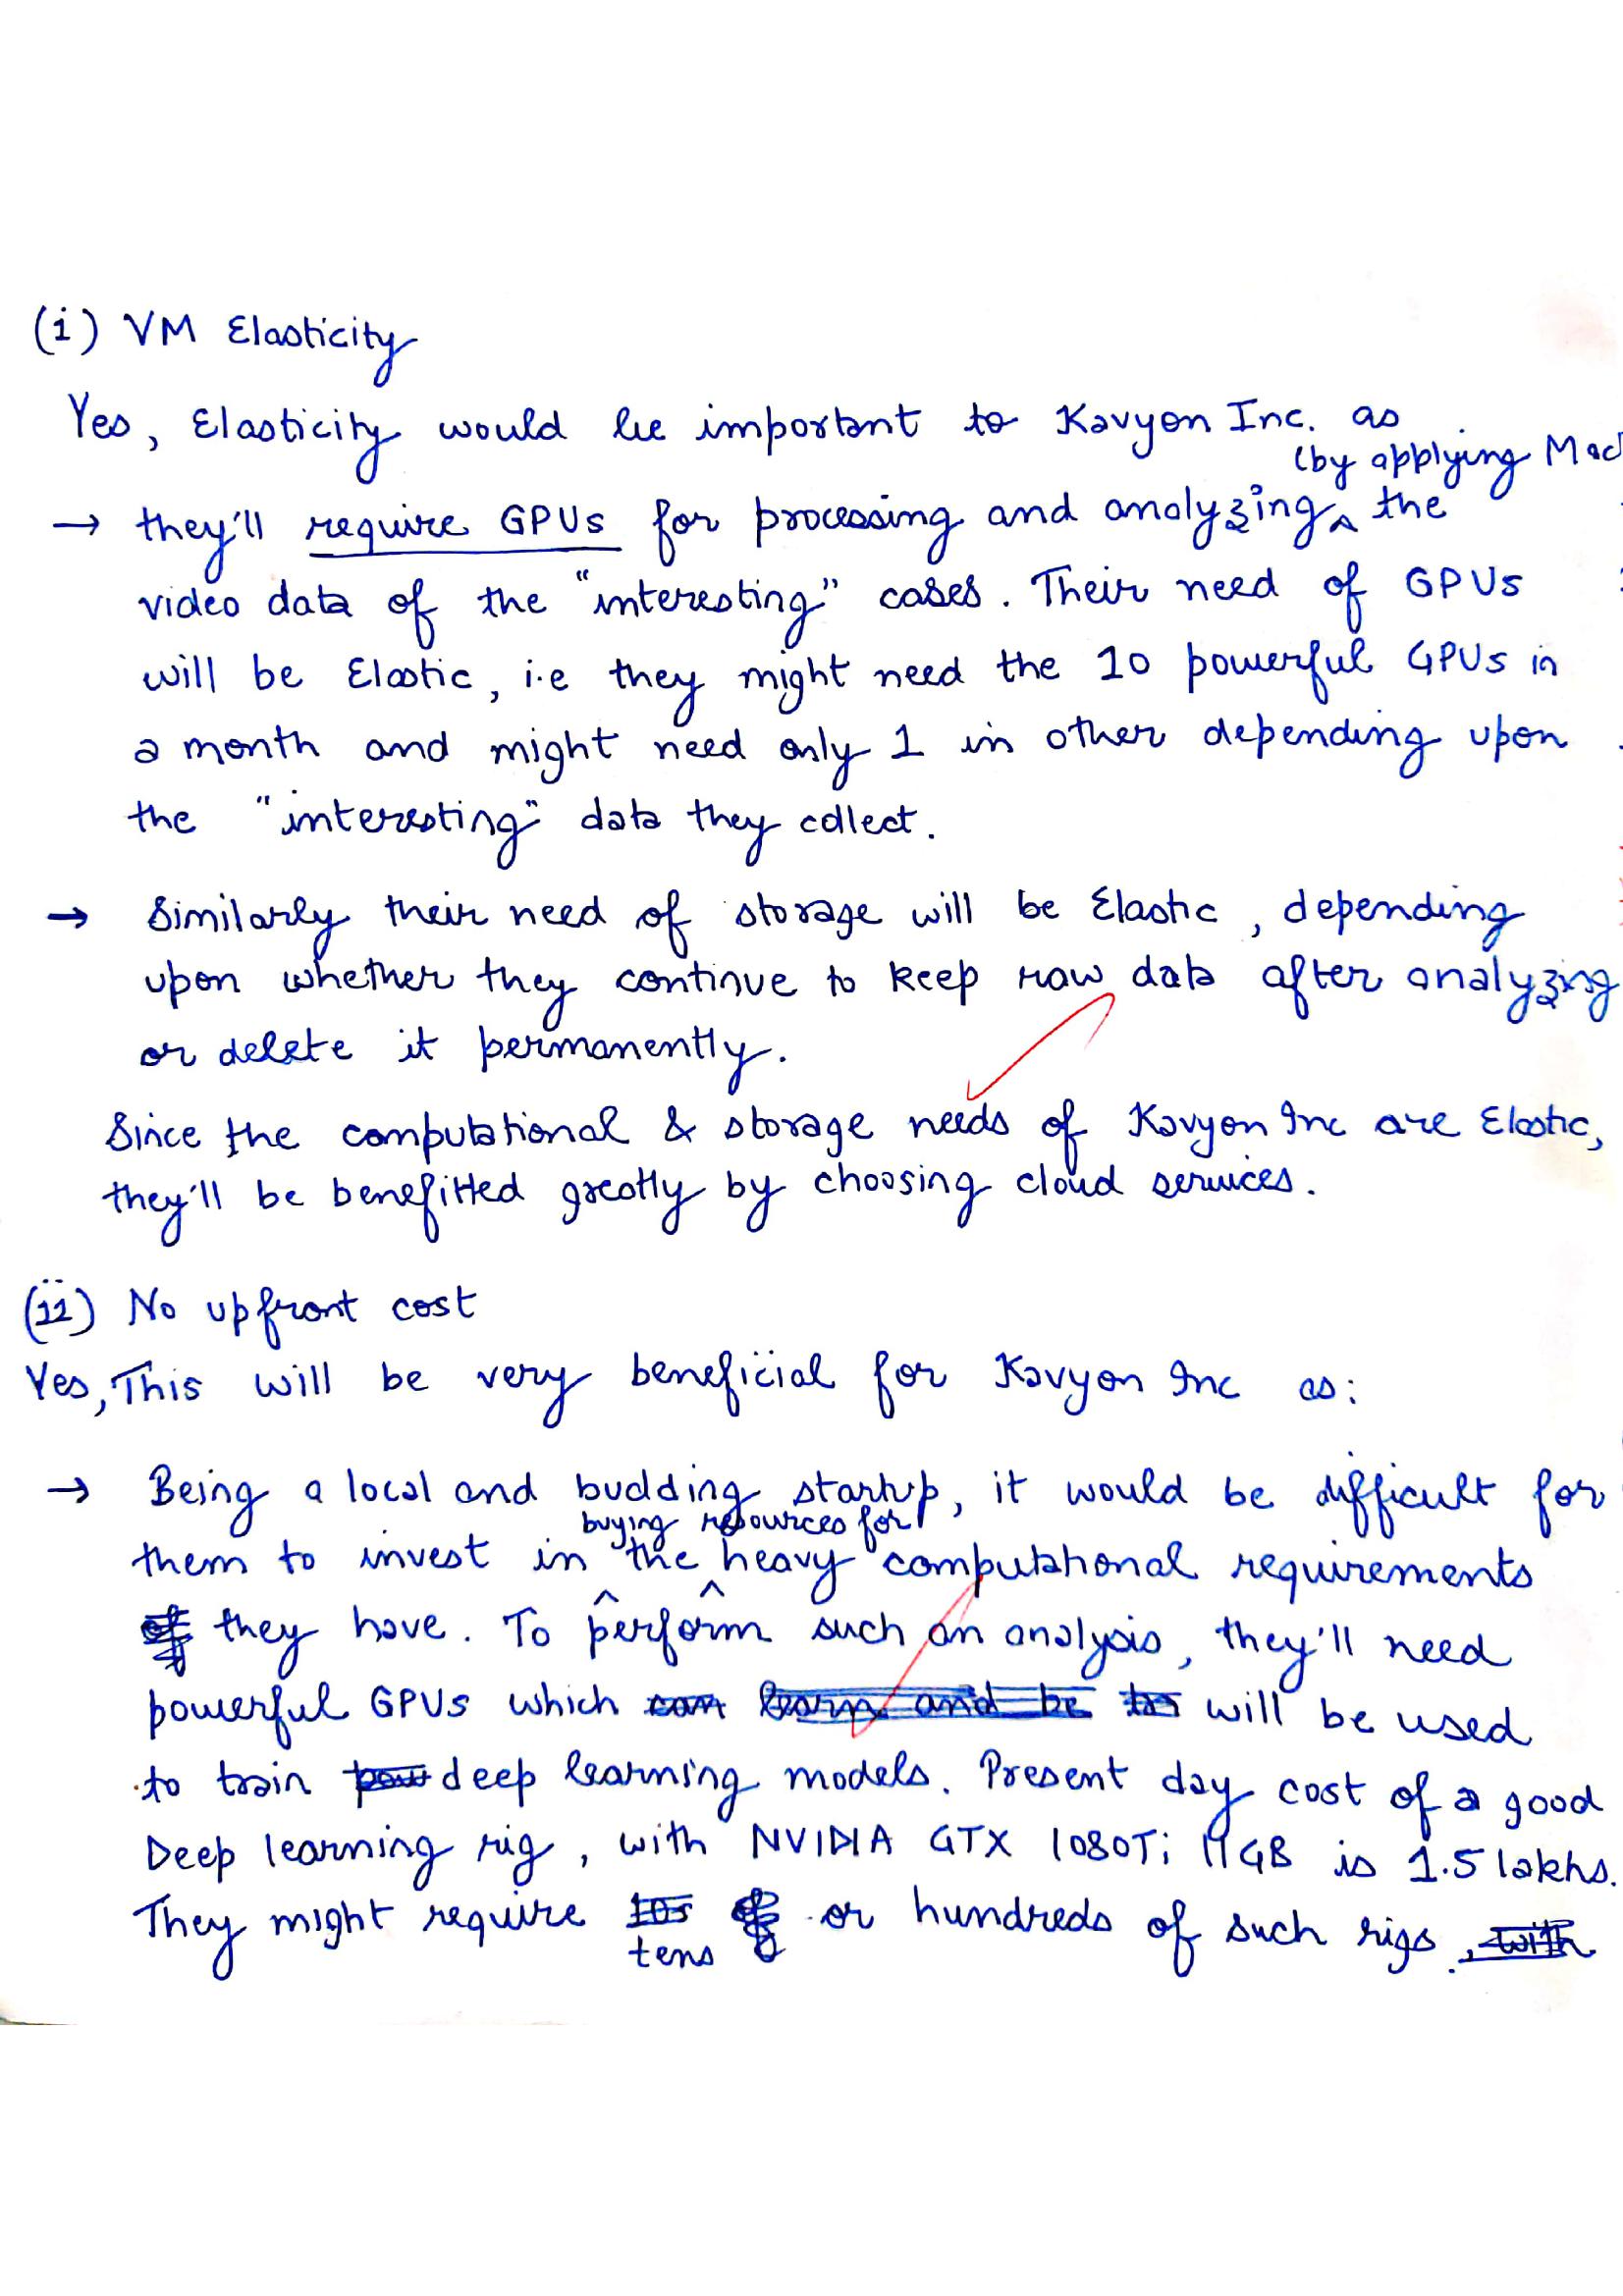 (i) VM Elasticity
Yes, Elasticity would be important to Kavyon Inc. as
(by applying Mac
→ they'll require GPUs for processing and analyzing ^ the
video data of the "interesting" cases. Their need of GPUs
will be Elastic, i.e they might need the 10 powerful GPUs in
a month and might need only 1 in other depending upon
the "interesting" data they collect.
→ Similarly their need of storage will be Elastic, depending
upon whether they continue to keep raw data after analyzing
or delete it permanently.
Since the computational & storage needs of Kavyon Inc are Elastic,
they'll be benefitted greatly by choosing cloud services.
(ii) No upfront cost
Yes, This will be very beneficial for Kavyon Inc as:
→ Being a local and budding startup, it would be difficult for
buying resources for
them to invest in ^ the ^ heavy computational requirements
of they have. To perform such an analysis, they'll need
powerful GPUs which can learn and be will be used
to train deep learning models. Present day cost of a good
Deep learning rig, with NVIDIA GTX 1080Ti 11GB is 1.5 lakhs.
They might require 10s of or hundreds of such rigs, with
tens